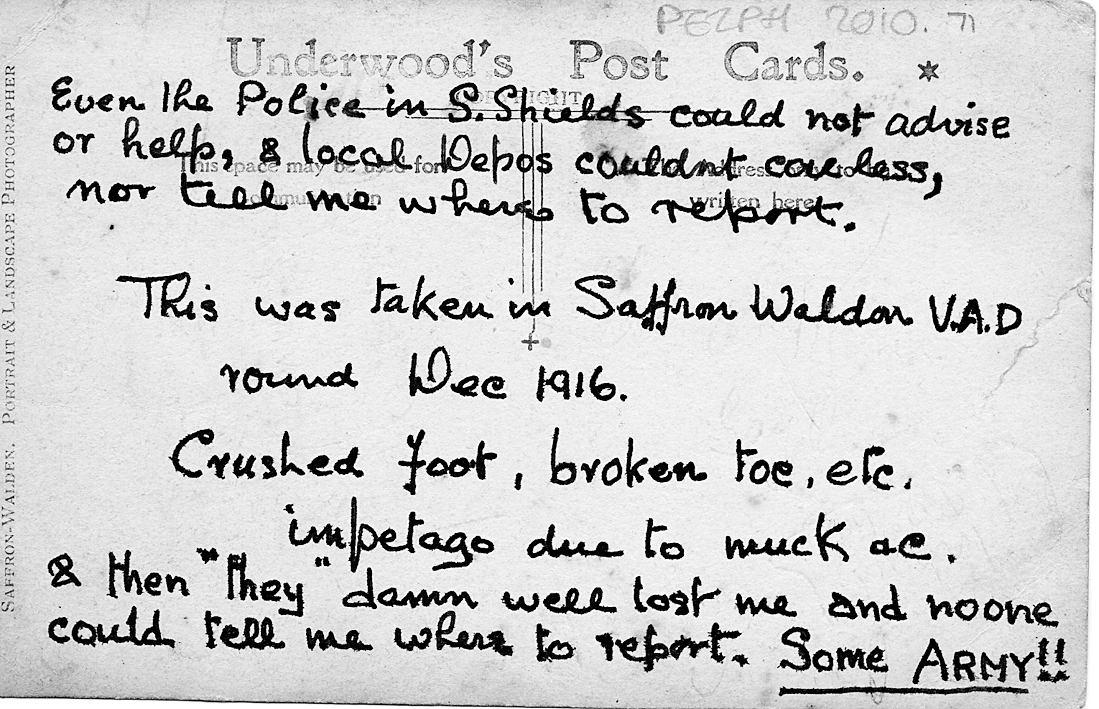 PEZPH 2010.71
Underwood's Post Cards.
COPYRIGHT
Even the Police in S. Shields could not advise
or help, & local Depos couldnt careless,
This space may be used for
nor tell me where to report.
written here
This was taken in Saffron Waldon V.A.D
round Dec 1916.
Crushed foot, broken toe, etc.
impetago due to muck ac.
& then "they" damn well lost me and noone
could tell me where to report. Some ARMY!!
SAFFRON-WALDEN. PORTRAIT & LANDSCAPE PHOTOGRAPHER